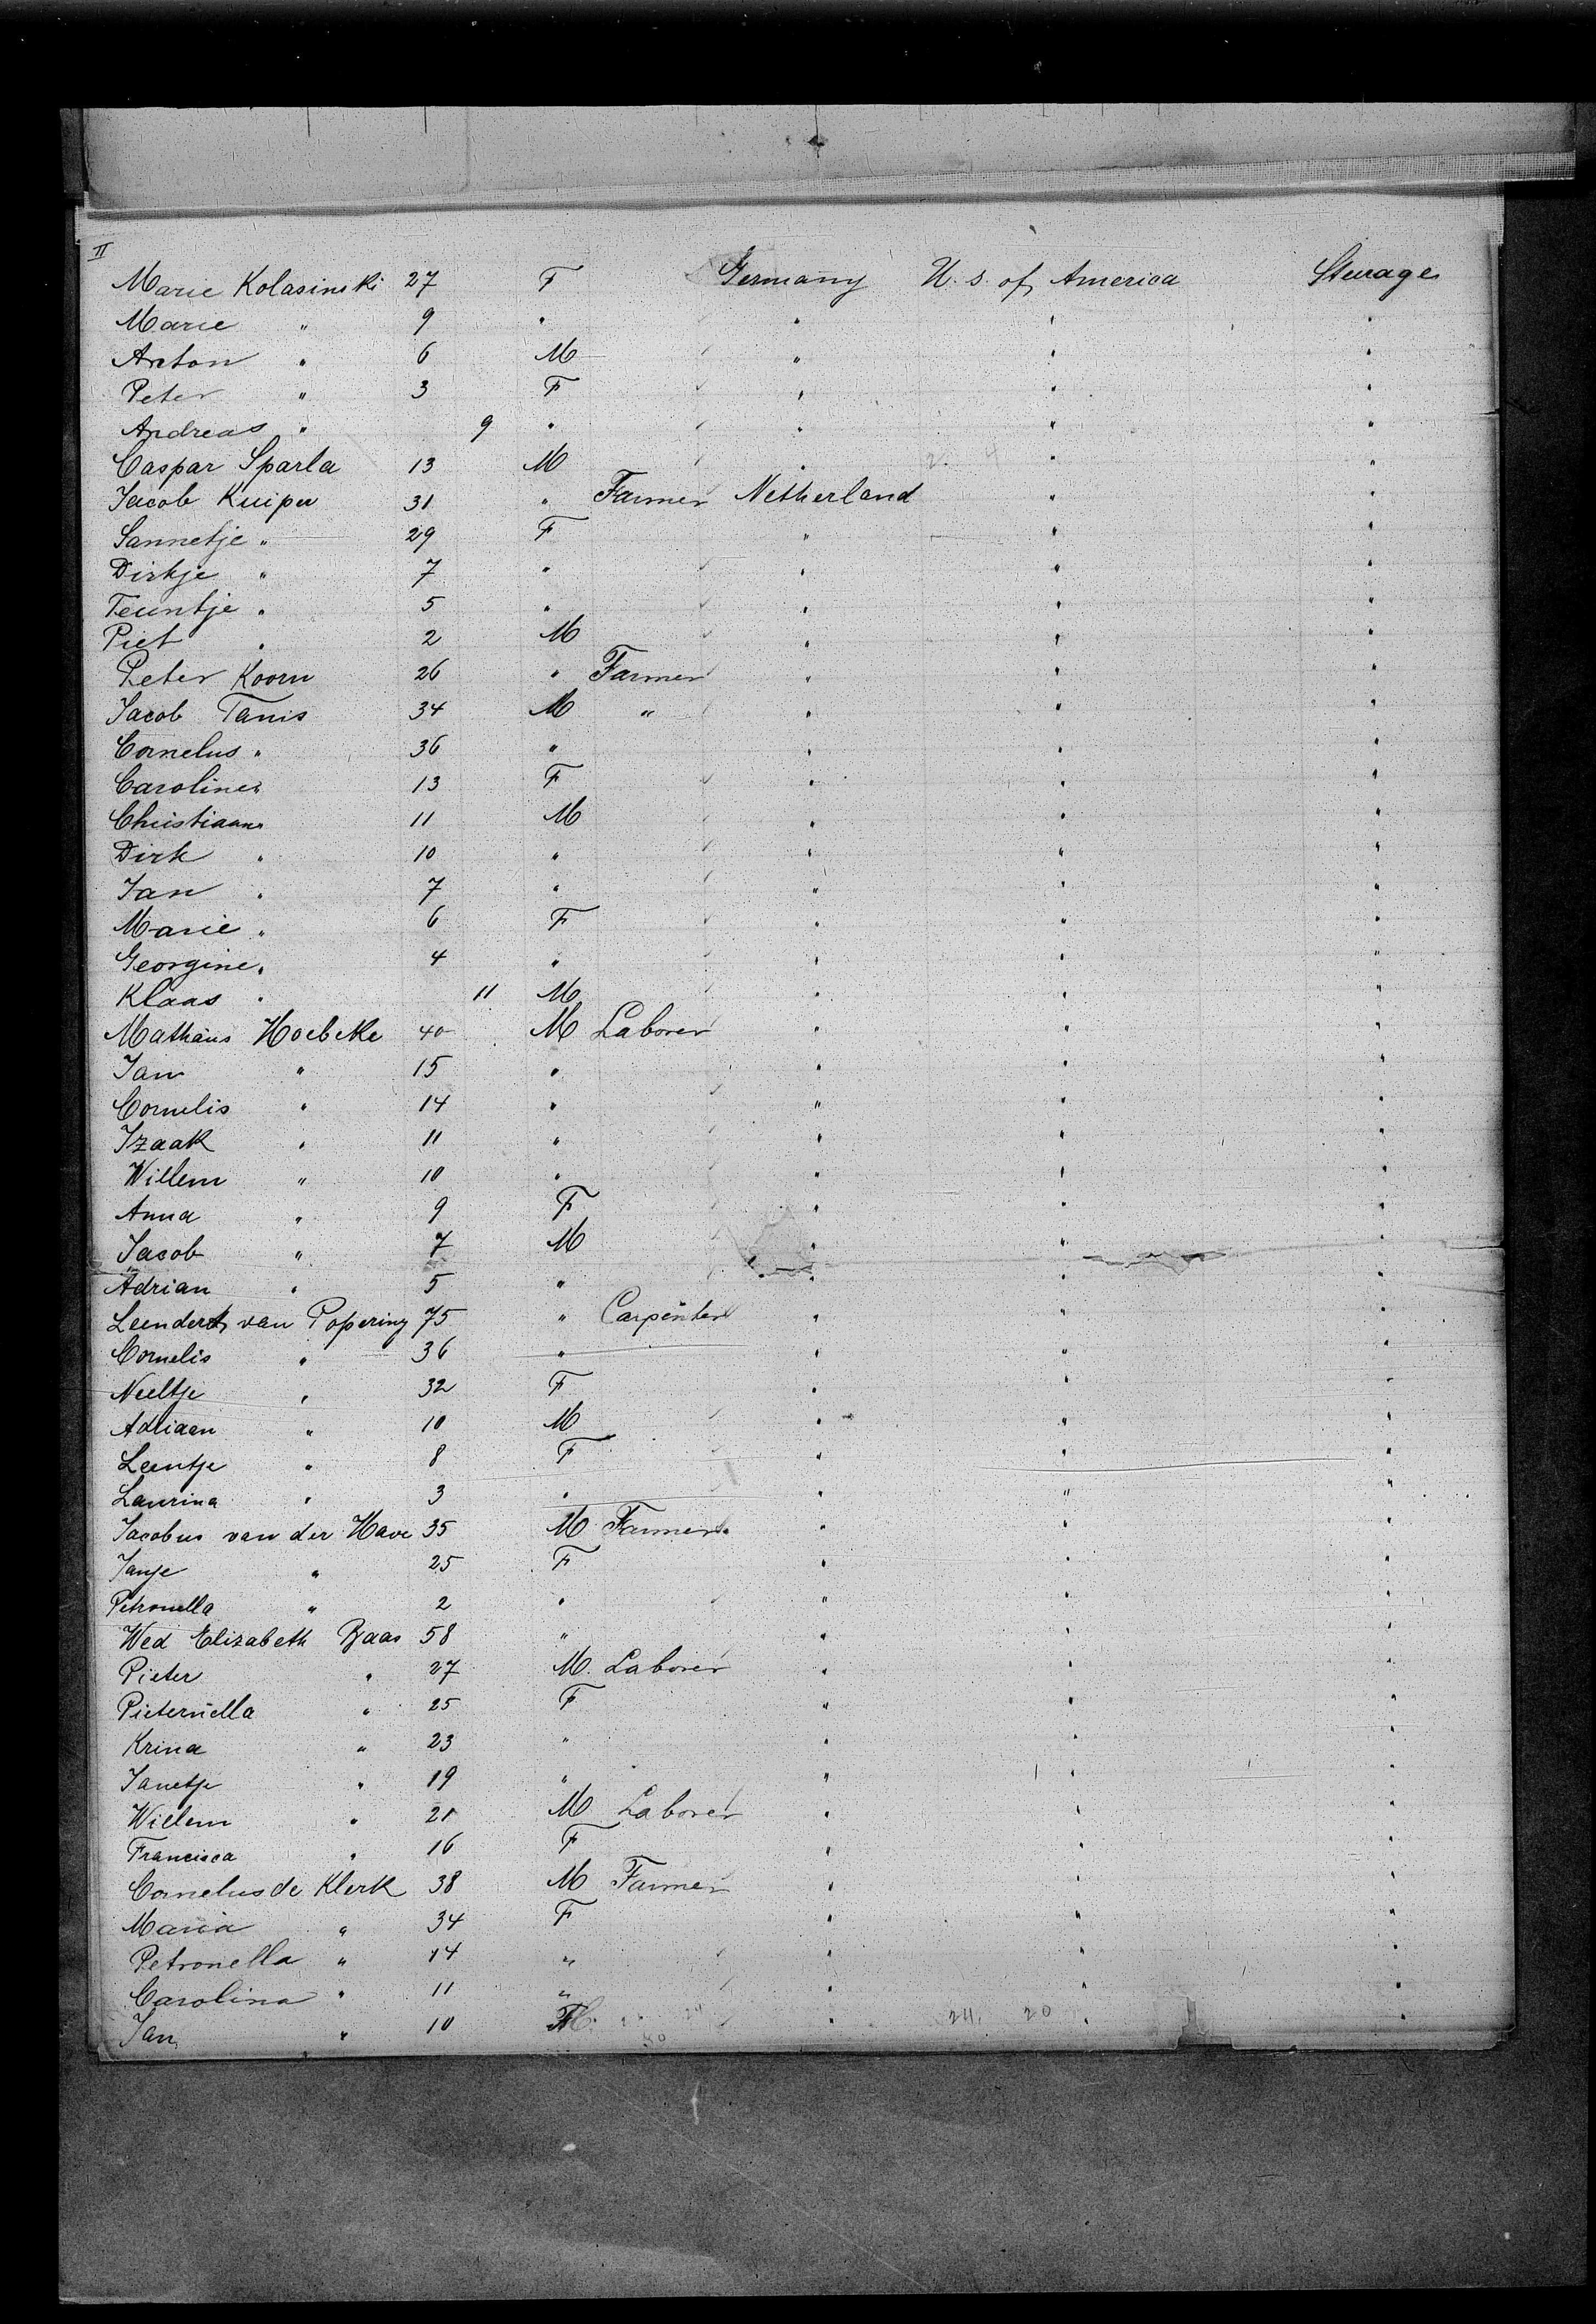 II
Marie Kolasinski 27 F Germany U. S. of America Steerage
Marie " 9 " " " "
Anton " 6 M " " "
Peter " 3 F " " "
Andreas " 9 " " " "
Caspar Sparla 13 M " 2. 4 " "
Jacob Kuiper 31 " Farmer Netherland " "
Sannetje " 29 F " " "
Dirkje " 7 " " " "
Teuntje " 5 " " " "
Piet " 2 M " " "
Peter Koorn 26 " Farmer " " "
Jacob Tanis 34 M " " " "
Cornelus " 36 " " " "
Caroline " 13 F " " "
Christiaan " 11 M " " "
Dirk " 10 " " " "
Jan " 7 " " " "
Marie " 6 F " " "
Georgine " 4 " " " "
Klaas " 11 M " " "
Mathäus Hoebeke 40 M Laborer " " "
Jan " 15 " " " "
Cornelis " 14 " " " "
Izaak " 11 " " " "
Willem " 10 " " " "
Anna " 9 F " " "
Jacob " 7 M " " "
Adrian " 5 " " " "
Leendert van Popering 75 " Carpenter " " "
Cornelis " 36 " " " "
Neeltje " 32 F " " "
Adriaan " 10 M " " "
Leentje " 8 F " " "
Laurina " 3 " " " "
Jacobus van der Have 35 M Farmer " " "
Janje " 25 F " " "
Petronella " 2 " " " "
Wed Elizabeth Baas 58 " " " "
Pieter " 27 M. Laborer " " "
Pieternella " 25 F " " "
Krina " 23 " " " "
Janetje " 19 " " " "
Willem " 21 M Laborer " " "
Francisca " 16 F " " "
Cornelus de Klerk 38 M Farmer " " "
Maria " 34 F " " "
Petronella " 14 " " " "
Carolina " 11 " " " "
Jan " 10 M. 24 " 24. 20 " "